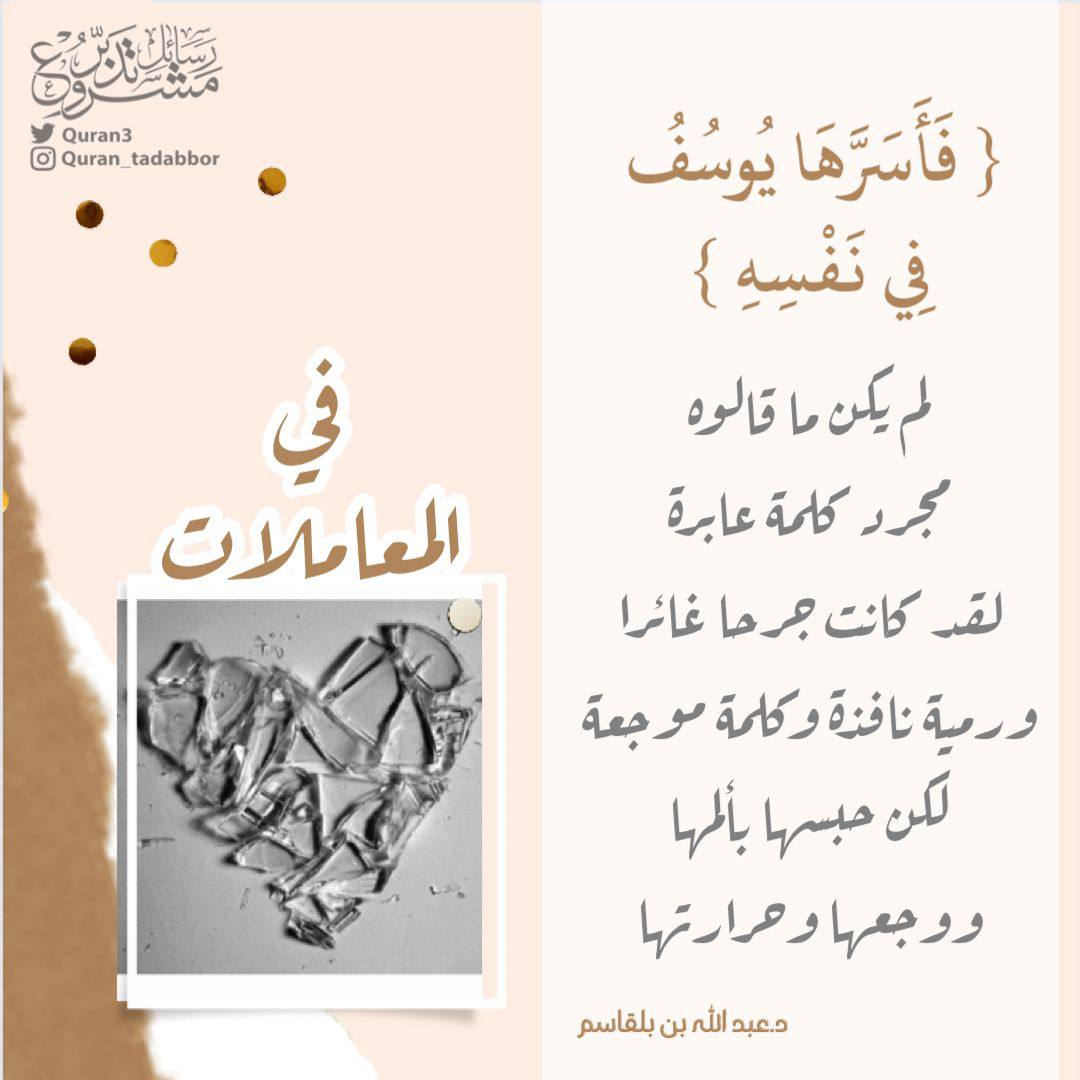 مشروع رسائل تدبر
Quran3
Quran_tadabbor
{ فَأَسَرَّهَا يُوسُفُ
فِي نَفْسِهِ }
لم يكن ما قالوه
مجرد كلمة عابرة
لقد كانت جرحا غائرا
ورمية نافذة وكلمة موجعة
لكن حبسها بألمها
ووجعها وحرارتها
د.عبد الله بن بلقاسم
في
المعاملات